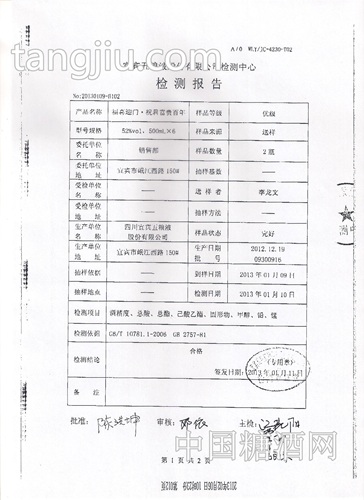 tangjiu.com
A/0 WLY/JC-4230-T02
检测中心
检测报告
No:20130109-0102
产品名称 福喜迎门·祝君富贵百年 样品等级 优级
型号规格 52%vol、500mL×6 样品来源 送样
委托单位名称 销售部 样品数量 2 瓶
委托单位地址 宜宾市岷江西路 150# 抽样基数 ——
受检单位名称 —— 送样者 李龙文
受检单位地址 —— 抽样方法 ——
生产单位名称 四川宜宾五粮液股份有限公司 样品状态 完好
生产单位地址 宜宾市岷江西路 150# 生产日期批号 2012.12.19 09300916
抽样依据 —— 到样日期 2013 年 01 月 09 日
抽样地点 —— 检测日期 2013 年 01 月 10 日
检测项目 酒精度、总酸、总酯、己酸乙酯、固形物、甲醇、铅、锰
检测依据 GB/T 10781.1-2006 GB 2757-81
检测结论 合格
(专用章)
签发日期:2013 年 01 月 11 日
批准: 审核: 主检:
中国糖酒网
第 1 页 共 2 页